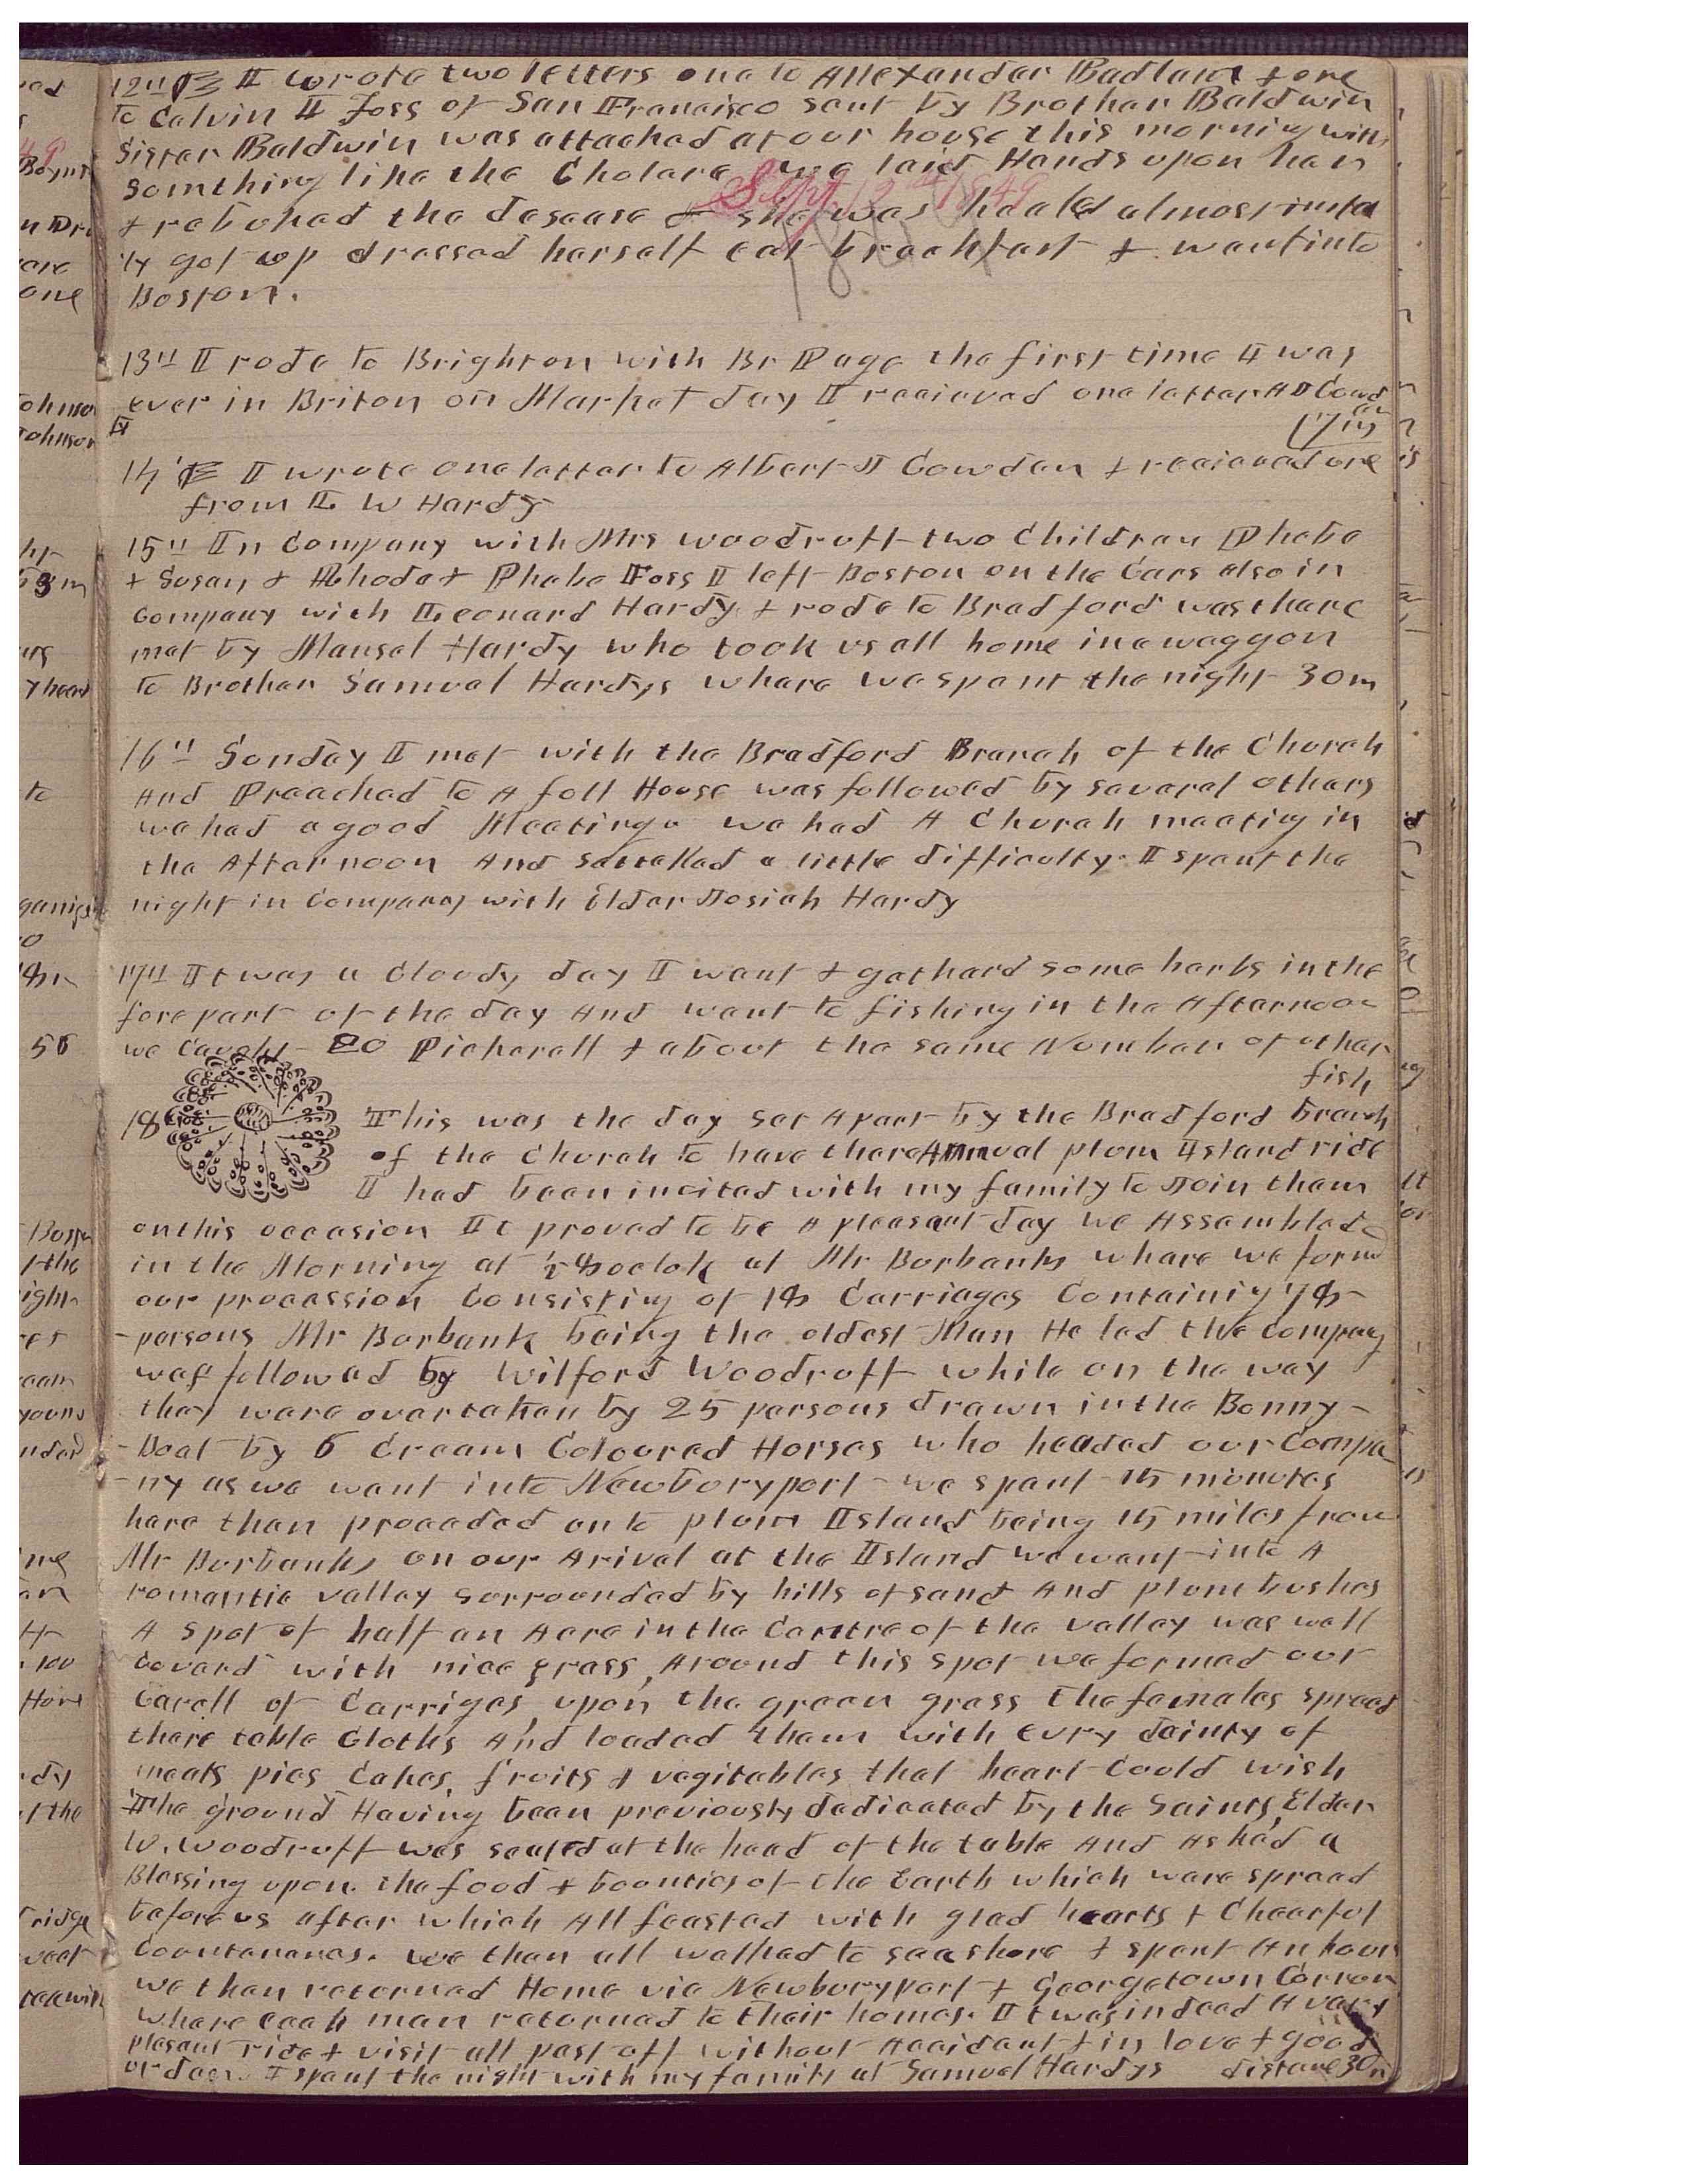 12th I wrote two letters one to Allexander Badlam & one
to Calvin I Foss of San Francisco sent by Brother Baldwin
Sister Baldwin was attached at our house this morning with
somthing like the Cholera we laid Hands upon her
Sept. 12th 1849
& rebuked the desease & she was healed almost insta
ly got up dressed herself eat breakfast & went into
1849
Boston.
13th I rode to Brighton with Br Page the first time I was
ever in Briton on Market day I recieved one letter A I Cowd
en
14th I wrote one letter to Albert I Cowden & recieved one
from L W Hardy
15th In Company with Mrs Woodruff two Children Phebe
& Susan & Rhoda & Phebe Foss I left Boston on the Cars also in
company with Leonard Hardy & rode to Bradford was there
met by Mansel Hardy who took us all home in a waggon
to Brother Samuel Hardys where we spent the night 30 m
16th Sunday I met with the Bradford Branch of the Church
And Preached to A full House was followed by several others
we had a good Meeting we had A Church meeting in
the Afternoon And settelled a little difficulty I spent the
night in Company with Elder Josiah Hardy
17th It was a Cloudy day I went & gatherd some herbs in the
forepart of the day And went to fishing in the Afternoon
we caught 20 Pickerell & about the same Number of other
fish
18 This was the day set Apart by the Bradford branch
of the Church to have there Annual plum Island ride
I had been invited with my family to Join them
on this occasion It proved to be A pleasant day we Assembled
in the Morning at 8 oclok at Mr Burbanks where we formd
our procession Consisting of 18 Carriages Containing 78
persons Mr Burbank being the oldest Man He led the company
was followed by Wilford Woodruff while on the way
they were overtaken by 25 persons drawn in the Bonny-
-Boat by 6 Cream Coloured Horses who headed our Compa
-ny as we went into Newburyport we spent 15 minutes
here then proceded on to plum Island being 15 miles from
Mr Burbanks on our Arival at the Island we went into A
romantic valley surrounded by hills of sand And plum bushes
A spot of half an Acre in the Centre of the valley was well
coverd with nice grass, Around this spot we formed our
Carell of Carriges, upon the green grass the females spread
there table Cloths And loaded them with evry dainty of
meats pies Cakes, fruits & vegitables that heart Could wish
The ground Having been previously dedicated by the Saints, Elder
W. Woodruff was seated at the head of the table And Asked a
Blessing upon the food & bounties of the Earth which were spread
before us after which All feasted with glad hearts & Chearful
Countenances. we then all walked to sea shore & spent An hour
we then returned Home via Newburyport & Georgetown Corner
where each man returned to their homes. It was indeed A very
plesant ride & visit all past off without Accident & in love & good
order. I spent the night with my family at Samuel Hardys distance 30 m